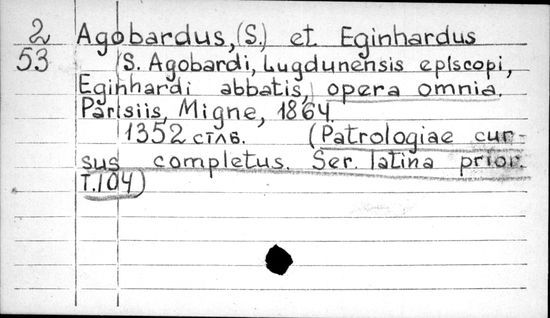 2
53
Agobardus, (S.) et Eginhardus
S. Agobardi, Lugdunensis episcopi,
Eginhardi abbatis, opera omnia.
Parisiis, Migne, 1864.
1352 стлв. (Patrologiae cur-
sus completus. Ser. latina prior.
T.104)